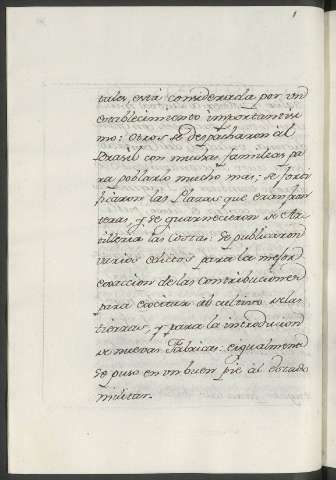 tales, está considerada por un
establecimiento importantisi
mo: Otros se despacharon al
Brasil con muchas familias pa
ra poblarlo mucho mas; se forti
ficaron las Plazas que eran fron
teras y se guarnecieron de Ar
tilleria las Costas: se publicaron
varios edictos para la mejor
exaccion de las contribuciones
para excitar al cultivo de las
tierras, y para la introduccion
de nuevas Fabricas: e igualmente
se puso en un buen pie al estado
militar.